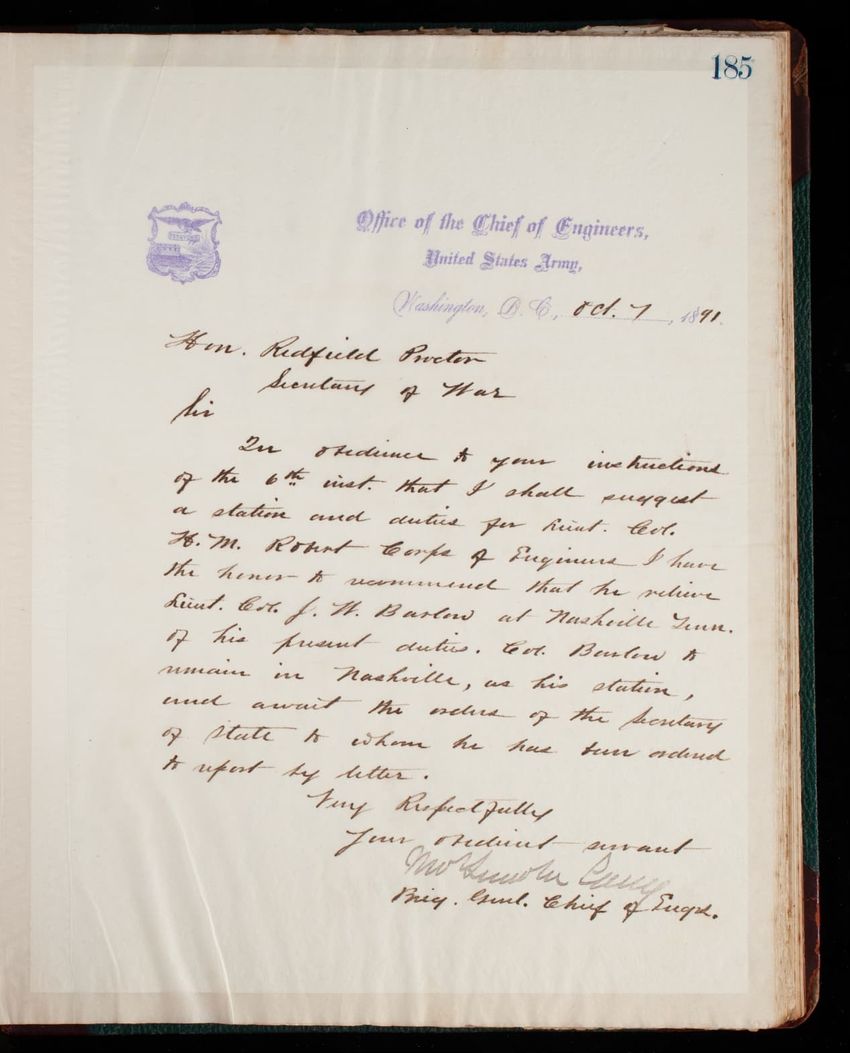 185
Office of the Chief of Engineers,
United States Army,
Washington, D.C., Oct. 7, 1891.
Hon. Redfield Proctor
Secretary of War
Sir
In obedience to your instructions
of the 6th inst. that I shall suggest
a station and duties for Lieut. Col.
H. M. Robert Corps of Engineers I have
the honor to recommend that he relieve
Lieut. Col. J. W. Barlow at Nashville Tenn.
of his present duties. Col. Barlow to
remain in Nashville, as his station,
and await the orders of the Secretary
of State to whom he has been ordered
to report by letter.
Very Respectfully
Your obedient servant
Thos Lincoln Casey
Brig. Genl. Chief of Engrs.